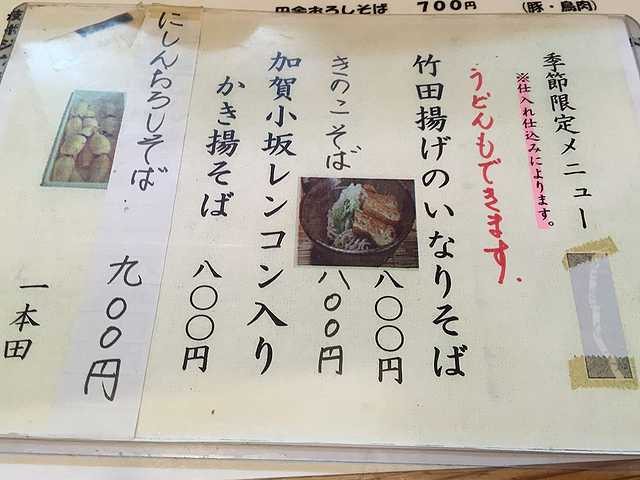 田舎おろしそば 700円 (豚・鳥肉)
季節限定メニュー
※仕入れ仕込みによります。
うどんもできます.
竹田揚げのいなりそば
八〇〇円
きのこそば
八〇〇円
加賀小坂レンコン入り
かき揚そば
八〇〇円
にしんおろしそば
九〇〇円
一本田